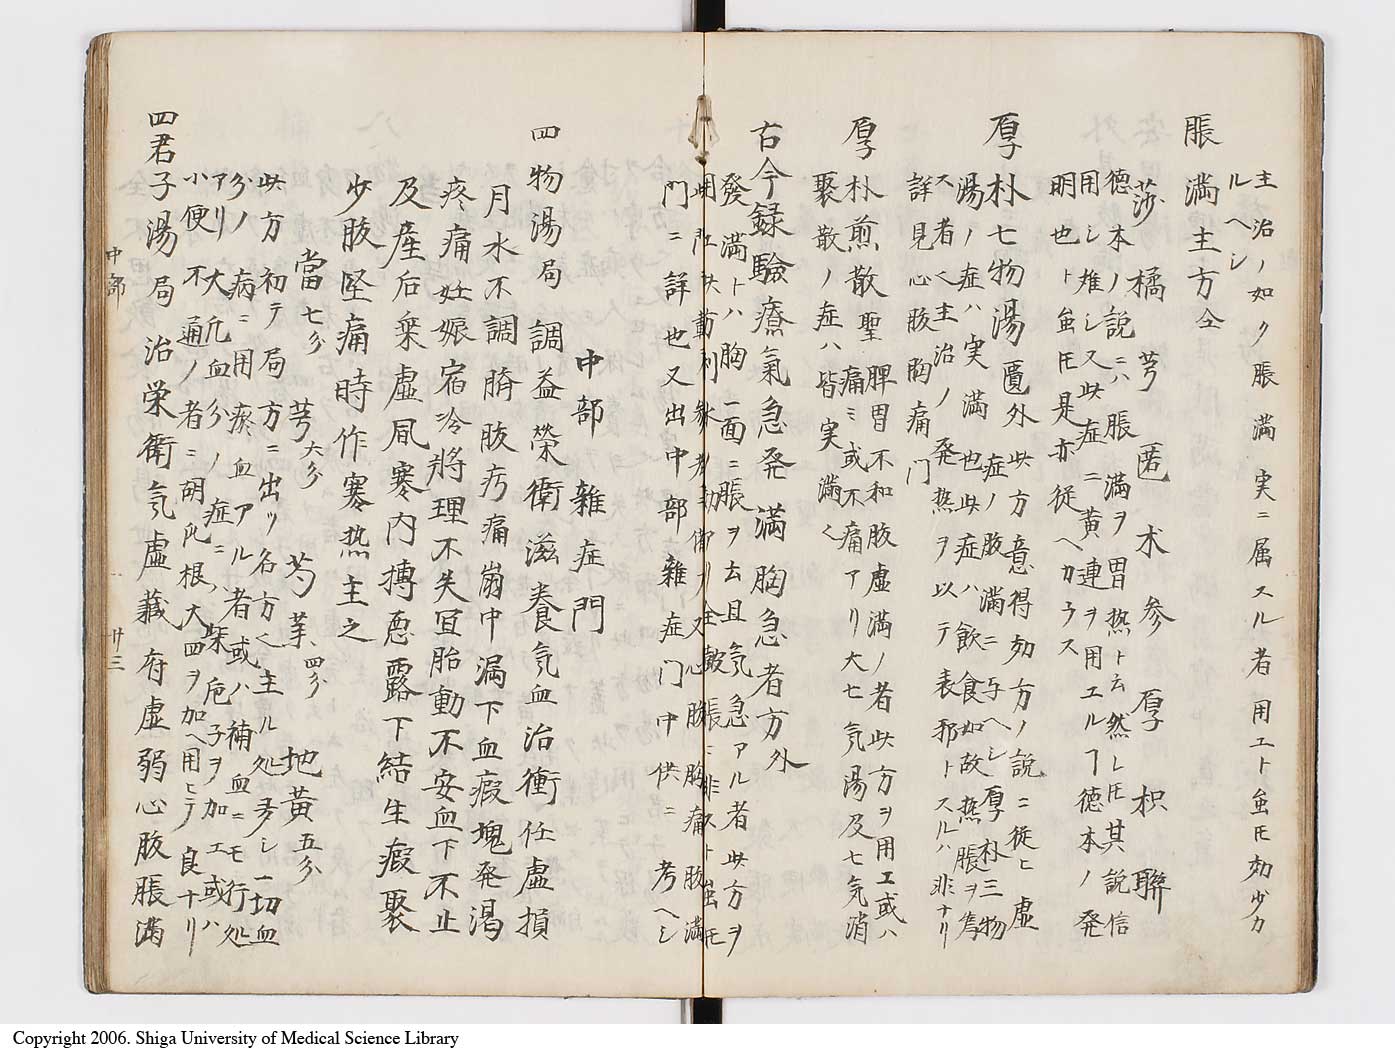 主治ノ如ク脹満実ニ属スル者用エト𧈧𪜈効少カ
ルヘシ
脹満主方仝
莎橘芎匿朮参厚枳聯
徳本ノ説ニハ脹満ヲ胃热ト云然レ𪜈其説信
用シ难シ又此症ニ黄連ヲ用エルヿ徳本ノ発
明也ト𧈧𪜈是亦従ヘカラス
厚朴七物湯匱外此方意得効方ノ説ニ従ヒ虚
症ノ腹満ニ与ヘシ厚朴三物
湯ノ症ハ実満也此症ハ飲食如故热脹ヲ
ス者く主治ノ発热ヲ以テ表邪トスルハ非ナリ
詳見心腹胸痛门
厚朴煎散聖脾胃不和腹虚満ノ者此方ヲ用エ或ハ
痛ミ或不痛アリ大七気湯及七気消
聚散ノ症ハ皆実満く
古今録驗療氣急発満胸急者方外
發満トハ胸一面ニ脹ヲ去且気急アル者此方ヲ
用又心腹胸痛腹満
門ニ詳也又出中部雜症门中供ニ考ヘシ
中部雜症門
四物湯局調益榮衛滋養気血治衝任虚損
月水不調臍腹疞痛崩中漏下血瘕塊発渴
疼痛妊娠宿冷将理不失宜胎動不安血下不止
及産后乗虚風寒内搏惡露下結生瘕聚
少腹坚痛時作寒热主之
當七分 芎六分 芍薬四分 地黄五分
此方初テ局方ニ出ツ名方く主ル処多シ一切血
分ノ病ニ用瘀血症アル者或ハ補血ニモ行処
アリ大凢血分ノ症ニハ梔子ヲ加エ或ハ
小便不通ノ者ニ胡芦根大四ヲ加ヘ用ヒテ良ナリ
四君子湯局治栄衛気虚藏府虚弱心腹脹満
中部
廿三
Copyright 2006. Shiga University of Medical Science Library